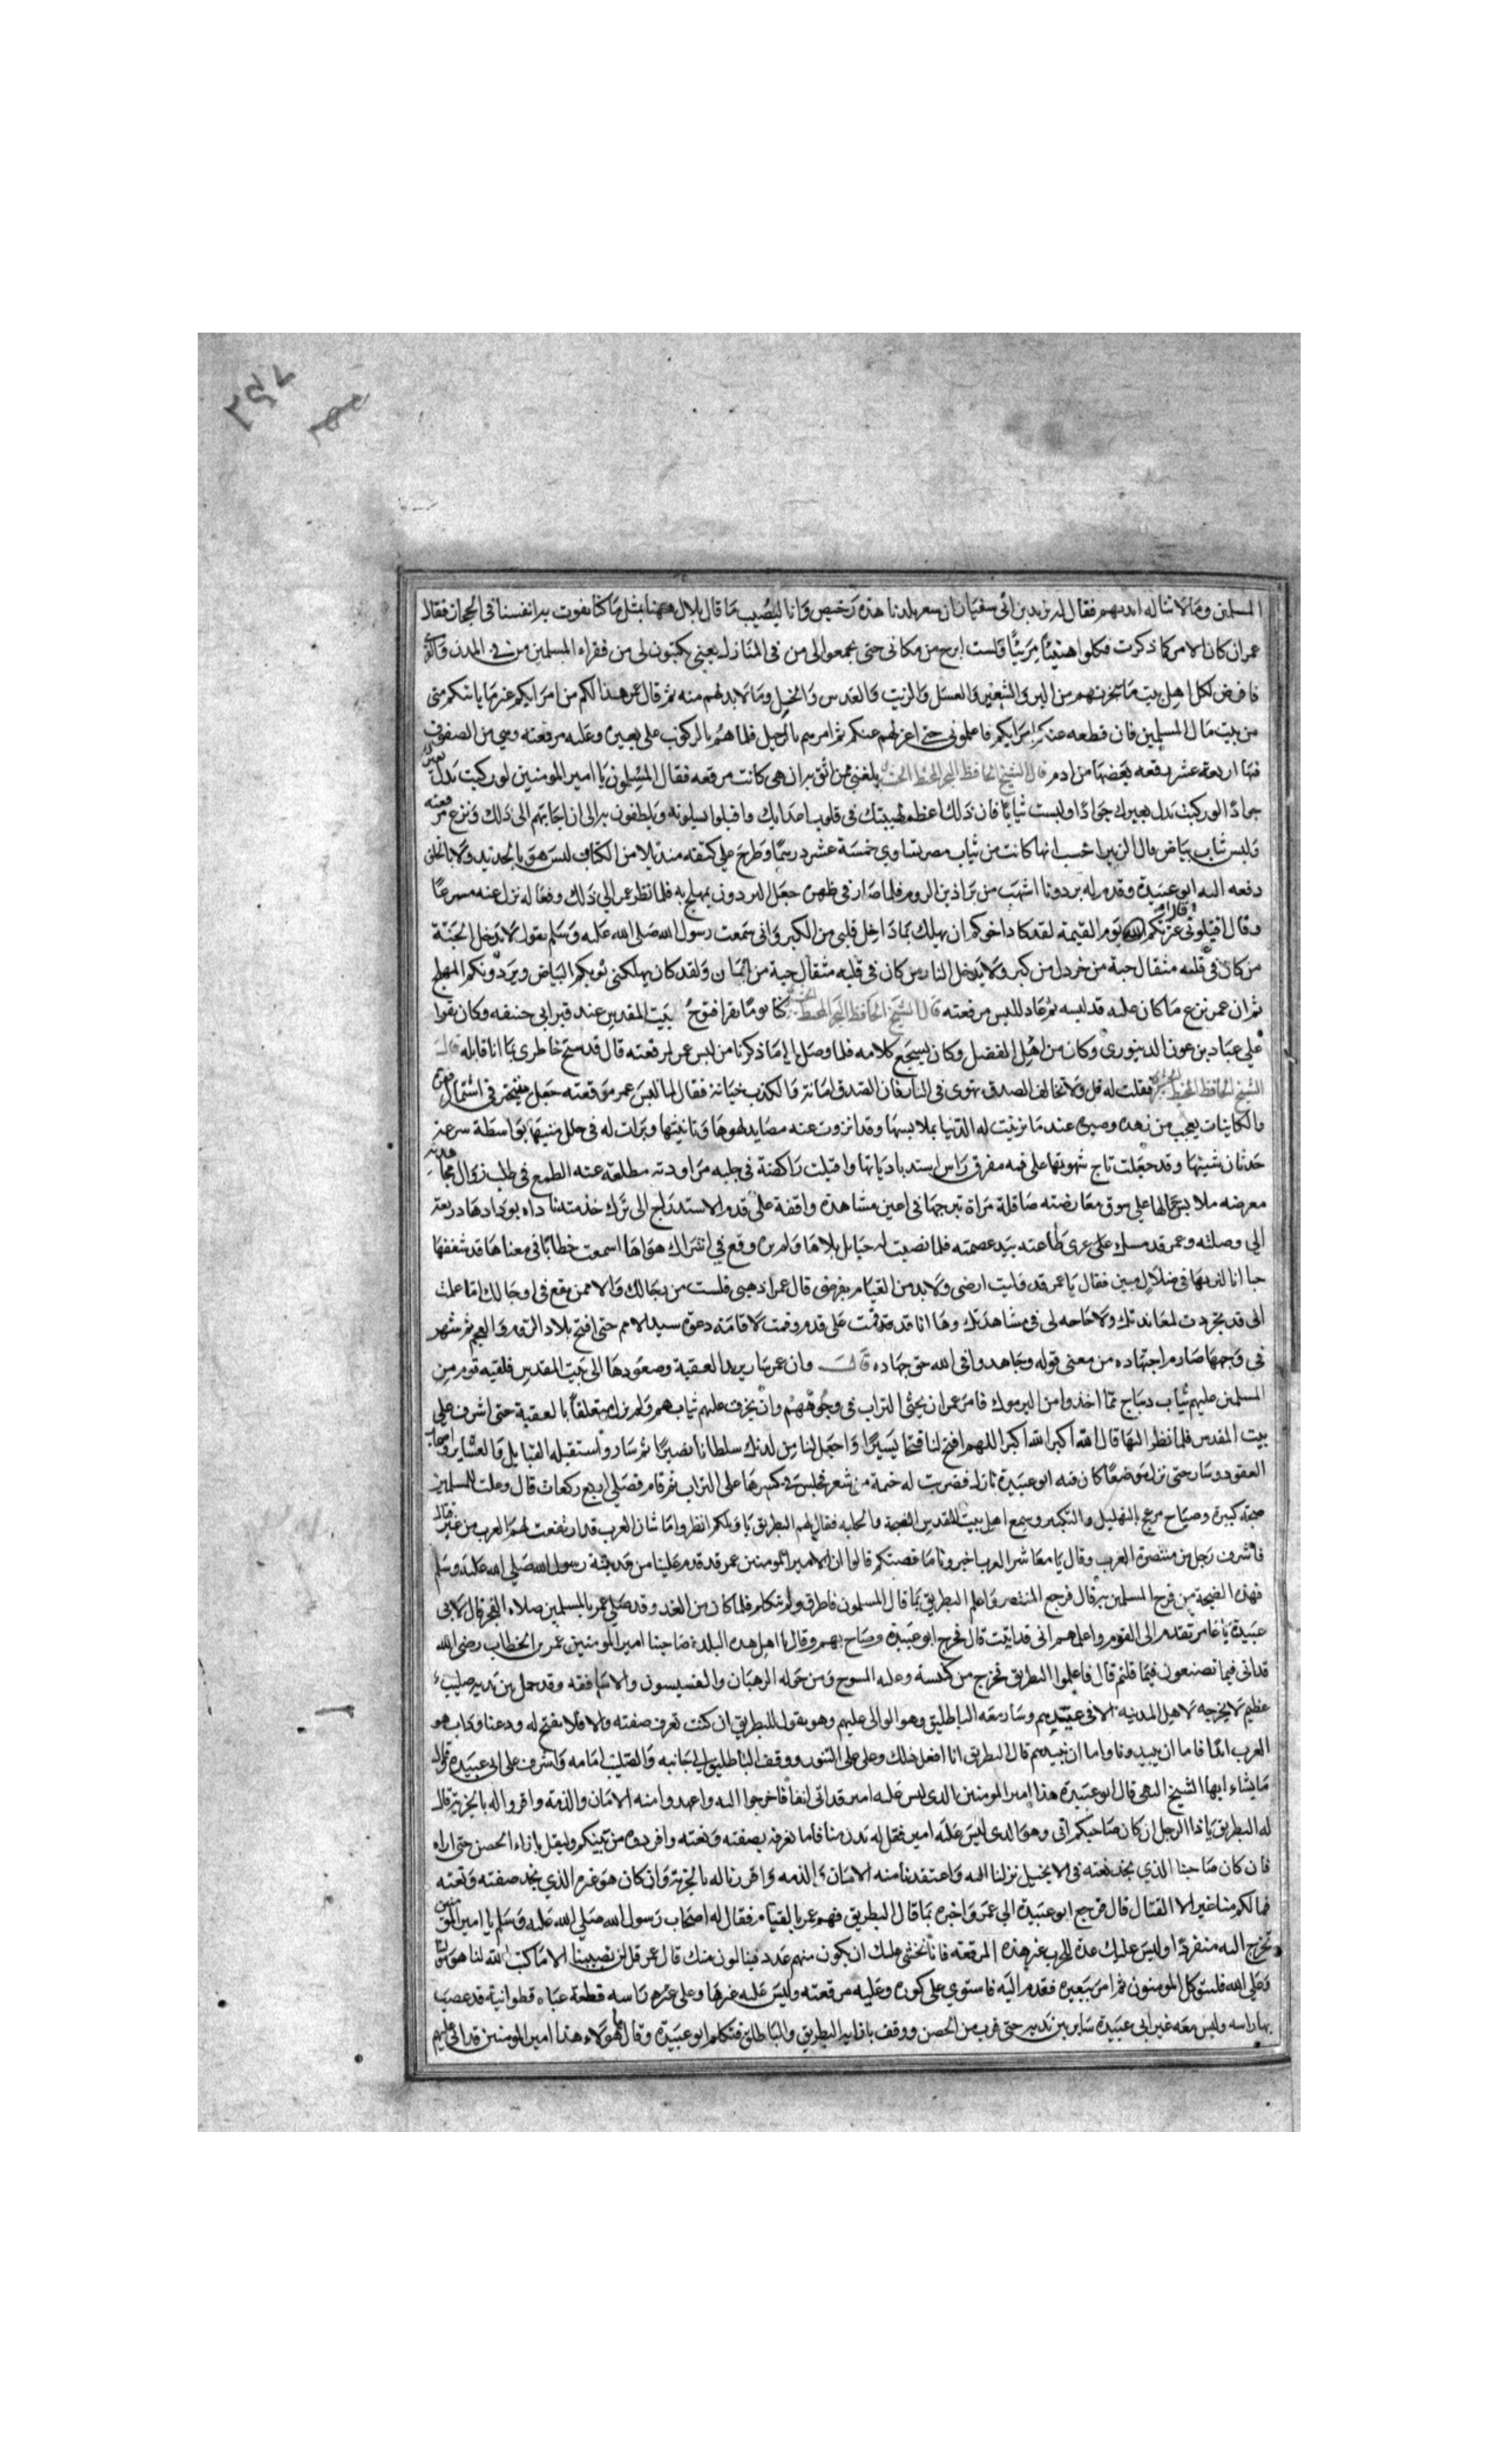 ٢٥٧
المسلمين وما لا تناله ايديهم فقال له يزيد بن ابي سفيان ان سعر بلدنا هذه رخيص وانا لنصيب ما قال بلال ههنا بمثل ما كنا نقوت به انفسنا في الحجاز فقال
عمر ان كان الامر كما ذكرت فكلوا هنيئا مريئا فلست ابرح من مكاني حتى تجمعوا الى من في المنازل يعني يكتبون لي من فقراء المسلمين من في المدن والقرى
فافرض لكل اهل بيت ما يجزيهم من البر والشعير والعسل والزيت والعدس والخل وما لا بد لهم منه ثم قال عمر هذا لكم من امرايكم غير ما ياتيكم مني
من بيت مال المسلمين فان قطعه عنكم امرايكم فاعلموني حتى اعزلهم عنكم ثم امرهم بالرحيل فلما هم بالركوب على بعيره وعليه مرقعته وهي من الصفوف
فيها اربعة عشر رقعه بعضها من ادم قال الشيخ الحافظ البحر المحيط بلغني ممن اثق به ان هي كانت مرقعه فقال المسلمون يا امير المومنين لو ركبت بدل بعيرك
جوادا لو ركبت بدل بعيرك جوادا ولبست ثيابا فان ذلك اعظم لهيبتك في قلوب اعدايك واقبلوا يسيلونه ويلطفون به الى ان اجابهم الى ذلك ونزع مرقعته
ولبس ثياب بياض قال الزبير احسب انها كانت من ثياب مصر تساوي خمسة عشر درهما وطرح على كتفه منديلا من الكتان ليس هو بالجديد ولا بالخلق
دفعه اليه ابو عبيدة وقدم له برذونا اشهب من براذين الروم فلما صار في ظهره جعل البرذون يهملج به فلما نظر عمر الى ذلك وفعاله نزل عنه مسرعا
وقال اقيلوني عثرتكم اقالكم الله يوم القيمة لقد كاد اخوكم ان يهلك بما داخل قلبي من الكبر واني سمعت رسول الله صلى الله عليه وسلم يقول لا يدخل الجنة
من كان في قلبه مثقال حبة من خردل من كبر ولا يدخل النار من كان في قلبه مثقال حبة من ايمان ولقد كان يهلكني ثوبكم البياض وبرذونكم المهملج
ثم ان عمر نزع ما كان عليه قد لبسه ثم عاد للبس مرقعته قال الشيخ الحافظ البحر المحيط كنا يوما نقرا فتوح بيت المقدس عند قبر ابي حنيفه وكان يقرا
علي عباد بن عون الدينوري وكان من اهل الفضل وكان يسجع كلامه فلما وصل الى ما ذكرنا من لبس عمر لمرقعته قال قد سنح خاطري بما انا قايله قال
الشيخ الحافظ المحيط فقلت له قل ولا تخالف الصدق تهوى في النار فان الصدق امانة والكذب خيانة فقال لما لبس عمر مرقعته جعل
والكاينات يعجب من زهده وصبره عندما تزينت له الدنيا بملابسها وقد انزوت عنه مصايد لهوها وبرزت له في حلل منيتها بواسطة سرعة
حدثان شيتها وقد جعلت تاج شهوتها على فيه مفرق راس واقبلت راكضة في حلبه مراودته مطلعة عنه الطمع في طلب زوال
معرضه ملابس على سوق معارضته صاقلة مراة تبرجها في اعين مشاهدة واقفة على قدم الاستدراج الى ترك خدمتنا
الى وصلته وعمر قد مسك على عرى طاعته بيد عصمته فلما نصبت له حبايل بلاها ولم يره وقع في اشراك هواها اسمعت خطابا في معناها قد شغفها
حبا انا لنريها في ضلال مبين فقال يا عمر قد وليت ارضي ولا بد من القيام بفرضي قال عمر اذهبي فلست من رجالك ولا ممن يقع في اوحالك اما علمت
اني قد تجردت لمعاندتك ولا حاجه لي في مشاهدتك وها انا قد وقفت على قدم وقمت لاقامة دعوه سيد الامم حتى افتح بلاد الروم والعجم ثم شهر
في وجهها صارم اجتهاده من معنى قوله وجاهدوا في الله حق جهاده قال وان عمر سار يريد العقبة وصعودها الى بيت المقدس فلقيه قوم من
المسلمين عليهم ثياب ديباج مما اخذوا من اليرموك فامر عمر ان يحثى التراب في وجوههم وان يخرق عليهم ثيابهم ولم يزل متعلقا بالعقبة حتى اشرف على
بيت المقدس فلما نظر اليها قال الله اكبر الله اكبر اللهم افتح لنا فتحا يسيرا واجعل لنا من لدنك سلطانا نصيرا ثم سار واستقبله القبايل والعشاير واصحاب
العقود وسار حتى نزل موضعا كان فيه ابو عبيدة نازل فضربت له خيمة من شعر فجلس في كسرها على التراب ثم قام فصلى اربع ركعات قال وعلت للمسلمين
ضجة كبيرة وصياح مزعج بالتهليل والتكبير وسمع اهل بيت المقدس الضجة والجلبه فقال لهم البطريق يا ويلكم انظروا ما شان العرب قد ارتفعت لهم
فاشرف رجل من متنصرة العرب وقال يا معاشر العرب اخبرونا ما قصتكم قالوا ان الامير المومنين عمر قد قدم علينا من مدينة رسول الله صلى الله عليه وسلم
فهذه الضجة من فرح المسلمين به قال فرجع المتنصر واعلم البطريق بما قال المسلمون فاطرق ولم يتكلم فلما كان من الغد وقد صلى عمر بالمسلمين صلاة الفجر قال لابي
عبيدة يا عامر تقدم الى القوم واعلمهم اني قد اتيت قال فخرج ابو عبيدة وصاح بهم وقال يا اهل هذه البلدة صاحبنا امير المومنين عمر بن الخطاب رضي الله
قد اتى فيما تصنعون فيما قلتم قال فاعلموا البطريق فخرج من كنيسة وعليه المسوح ومن حوله الرهبان والقسيسون والاساقفه وقد حمل بين يديه صليب
عظيم لا يخرجه لاهل المدينه الا في عيدهم وسار معه الباطليق وهو الوالى عليهم وهو يقول للبطريق ان كنت تعرف صفته والا فلا نفتح له ودعنا
العرب اما ان يبيدونا واما ان نبيدهم قال البطريق انا افعل ذلك وعلى على السور ووقف الباطليق الى جانبه والصليب امامه واشرف على ابي عبيدة وقال
ما تشاء ايها الشيخ البهي قال ابو عبيدة هذا امير المومنين الذي ليس عليه امير قد اتى انفا فاخرجوا اليه واعهدوا منه الامان والذمة واقروا له بالجزية قال
له البطريق يا ذا الرجل ان كان صاحبكم اتى وهو الذي ليس عليه امير فقل له يدن منا فانا نعرفه بصفته ونعته وافردوه من بينكم وليقل بازاء الحصن حتى اراه
فان كان صاحبنا الذي نجد نعته في الانجيل نزلنا اليه واعتقدنا منه الامان والذمه واقررنا له بالجزية وان كان هو غيره الذي نجد صفته ونعته
فما لكم منا غير الا القتال قال فرجع ابو عبيدة الى عمر واخبره بما قال البطريق فهم عمر بالقيام فقال له اصحاب رسول الله صلى الله عليه وسلم يا امير المومنين
تخرج اليه منفردا وليس عليك عدة للحرب غير هذه المرقعه فانا نخشى عليك ان يكون منهم غدر فينالون منك قال عمر قل لن يصيبنا الا ما كتب الله لنا هو مولانا
وعلى الله فليتوكل المومنون ثم امر ببعيره فقدم اليه فاستوى على كوره وعليه مرقعته وليس عليه غيرها وعلى راسه قطعة عباه قطوانية قد عصب
بها راسه وليس معه غير ابي عبيدة ساير بين يديه حتى قرب من الحصن ووقف بازايه البطريق والباطليق فتكلم ابو عبيدة وقال يا هولاء هذا امير المومنين قد اتى عليهم